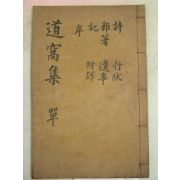 詩 行狀
雜著 遺事
記 附
序
道窩集 單